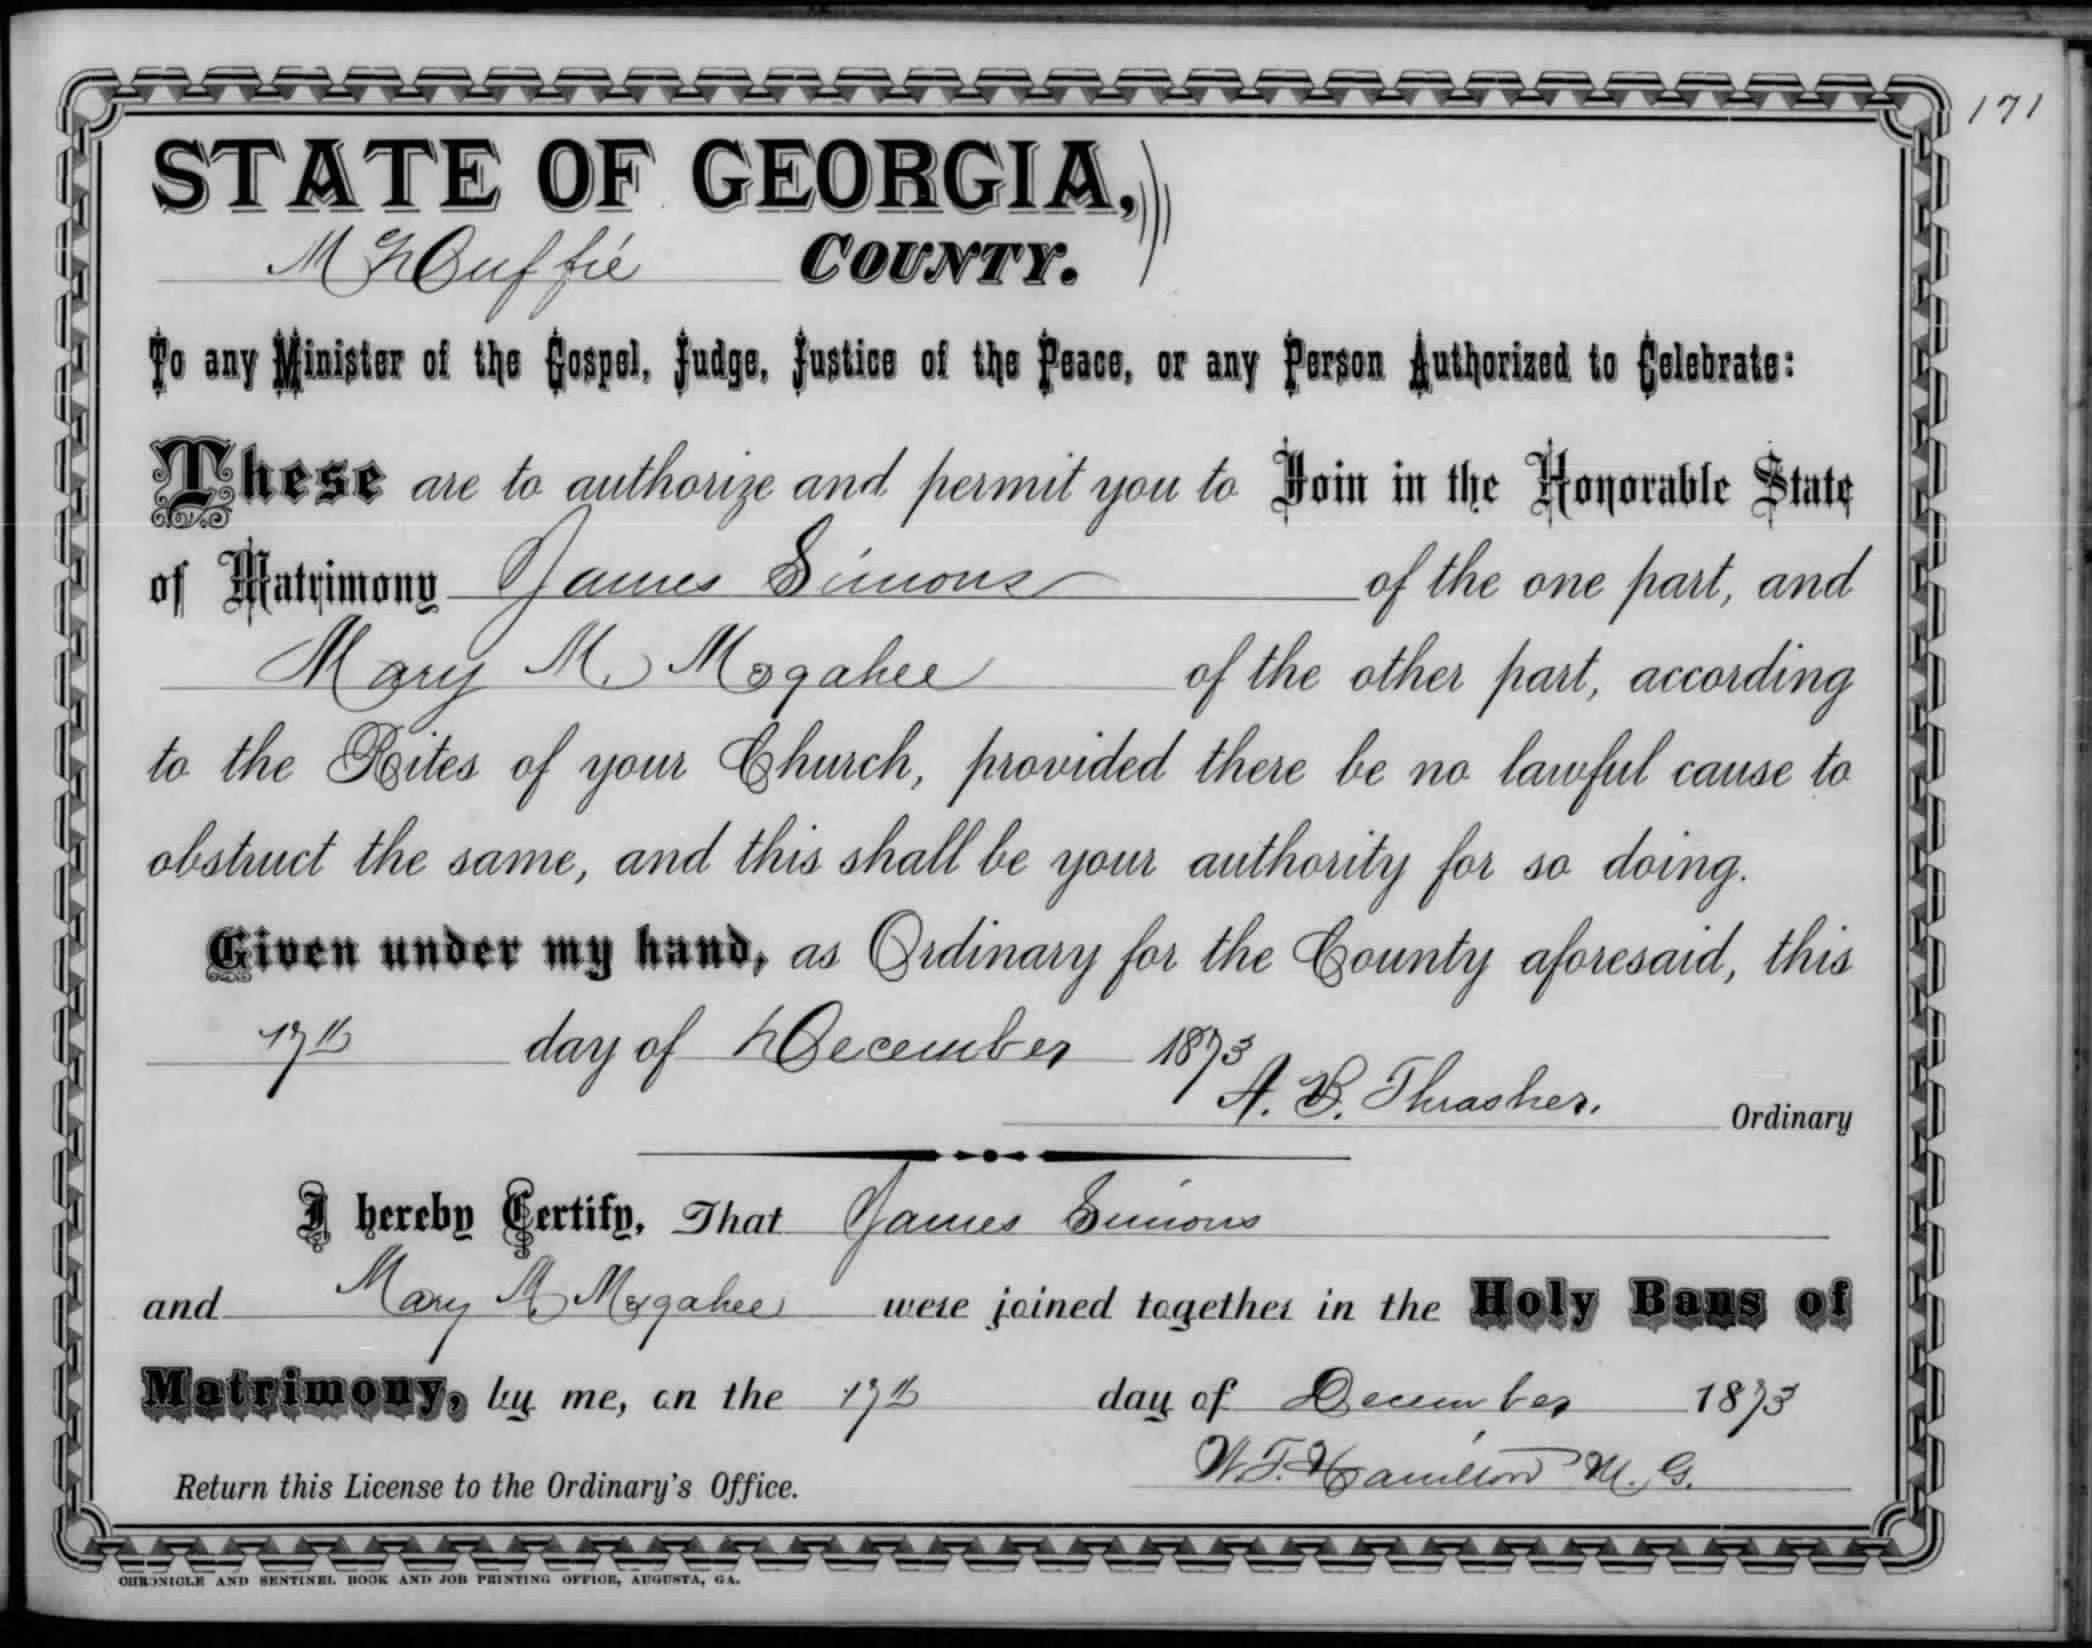 171
STATE OF GEORGIA,
McDuffie COUNTY.
To any Minister of the Gospel, Judge, Justice of the Peace, or any Person Authorized to Celebrate:
These are to authorize and permit you to Join in the Honorable State
of Matrimony James Simons of the one part, and
Mary M. Mogahee of the other part, according
to the Rites of your Church, provided there be no lawful cause to
obstruct the same, and this shall be your authority for so doing.
Given under my hand, as Ordinary for the County aforesaid, this
17th day of December 1873
A. B. Thrasher. Ordinary
I hereby Certify, That James Simons
and Mary M Mogahee were joined together in the Holy Bans of
Matrimony, by me, on the 17th day of December 1873
W. T. Hamilton M. G.
Return this License to the Ordinary's Office.
CHRONICLE AND SENTINEL BOOK AND JOB PRINTING OFFICE, AUGUSTA, GA.